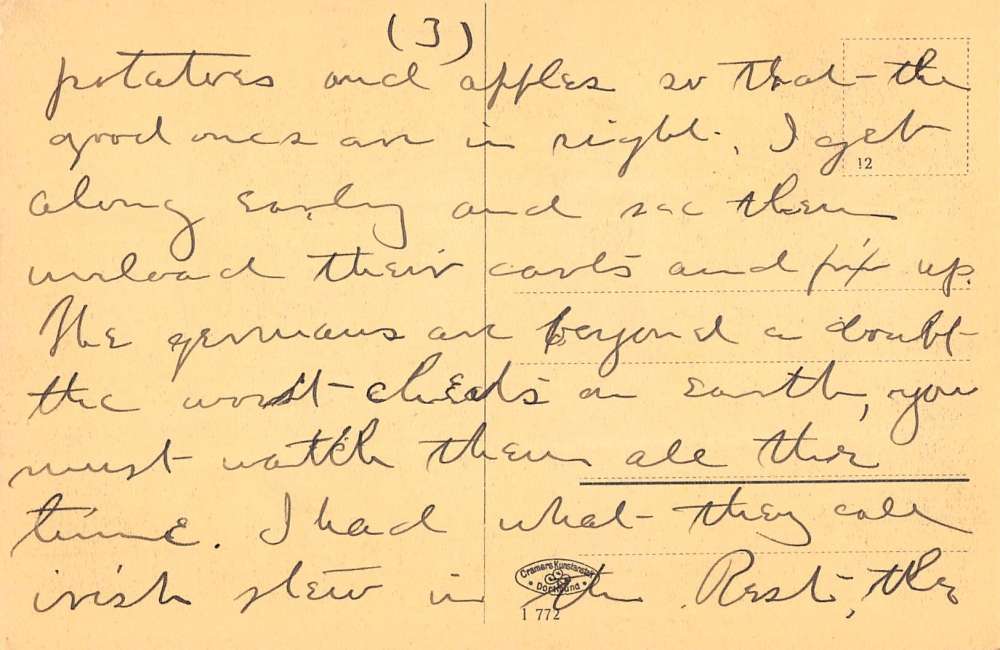 (3)
potatoes and apples so that the
good ones are in sight. I get
12
along early and see them
unload their carts and fix up.
The germans are beyond a doubt
the worst cheats on earth, you
must watch them all the
time. I had what they call
irish stew in the Rest, the
Cramers Kunstanstalt
Dortmund
1 772